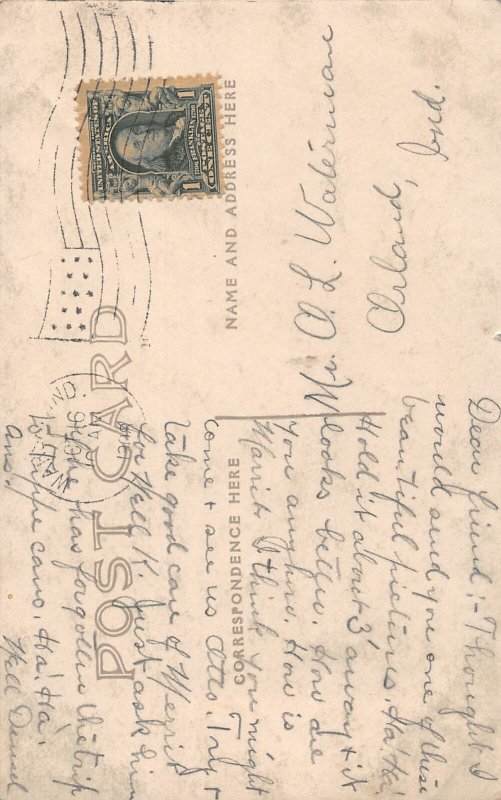 POST CARD
CORRESPONDENCE HERE
NAME AND ADDRESS HERE
UNITED STATES OF AMERICA
FRANKLIN
POSTAGE
1 ONE CENT 1
Dear friend:- Thought I
would send you one of these
beautiful pictures. Ha! Ha!
Hold it about 3' away & it
looks better. How are
you anyhow. How is
Merrit. I think you might
come & see us Otto. Try &
take good care of Merrit
for Nell K. Just ask him
if he has forgotten the trip
and the cans. Ha! Ha!
Will
Mr. O. L. Waterman
Orland, Ind.